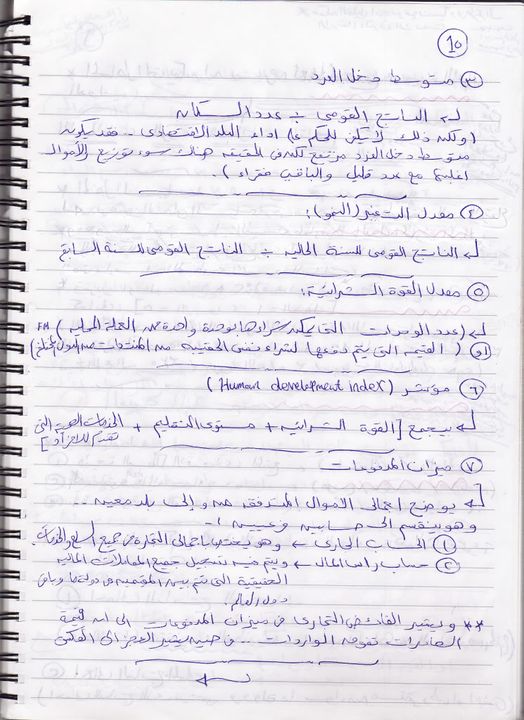 10
③ متوسط دخل الفرد
↲ الناتج القومى ÷ عدد السكان
(ولكن ذلك لا يمكن للحكم على اداء البلد الاقتصادى .. فقد يكون
متوسط دخل الفرد مرتفع لكن فى الحقيقة هناك سوء توزيع للأموال
اغلبها مع عدد قليل والباقى فقراء).
④ معدل التغير (النمو):
↲ الناتج القومى للسنة الحالية ÷ الناتج القومى للسنة السابقة
⑤ معدل القوة الشرائية:
↲ (عدد الوحدات التى يمكن شراؤها بوحدة واحدة من العملة المحلية)
أو (القيمة التى يتم دفعها لشراء نفس الحقيبة من المنتجات من الدول المختلفة)
⑥ مؤشر (Human development index)
↲ يجمع [القوة الشرائية + مستوى التعليم + الخدمات الصحية التى
تقدم للأفراد]
⑦ ميزان المدفوعات
↲ يوضح اجمالى الاموال المتدفقة من وإلى بلد معين ..
وهو ينقسم الى حسابين فرعيين :-
① الحساب الجارى ← وهو يختص باجمالى التجارة فى جميع السلع والخدمات
② حساب رأس المال ← ويتم فيه تسجيل جميع المعاملات المالية
الحقيقية التى تتم بين المقيمين فى دولة ما وباقى
دول العالم.
** ويشير الفائض التجارى فى ميزان المدفوعات الى ان قيمة
الصادرات تفوق الواردات .. فى حين يشير العجز الى العكس